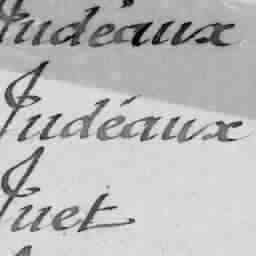 Judéaux
Judéaux
Juet